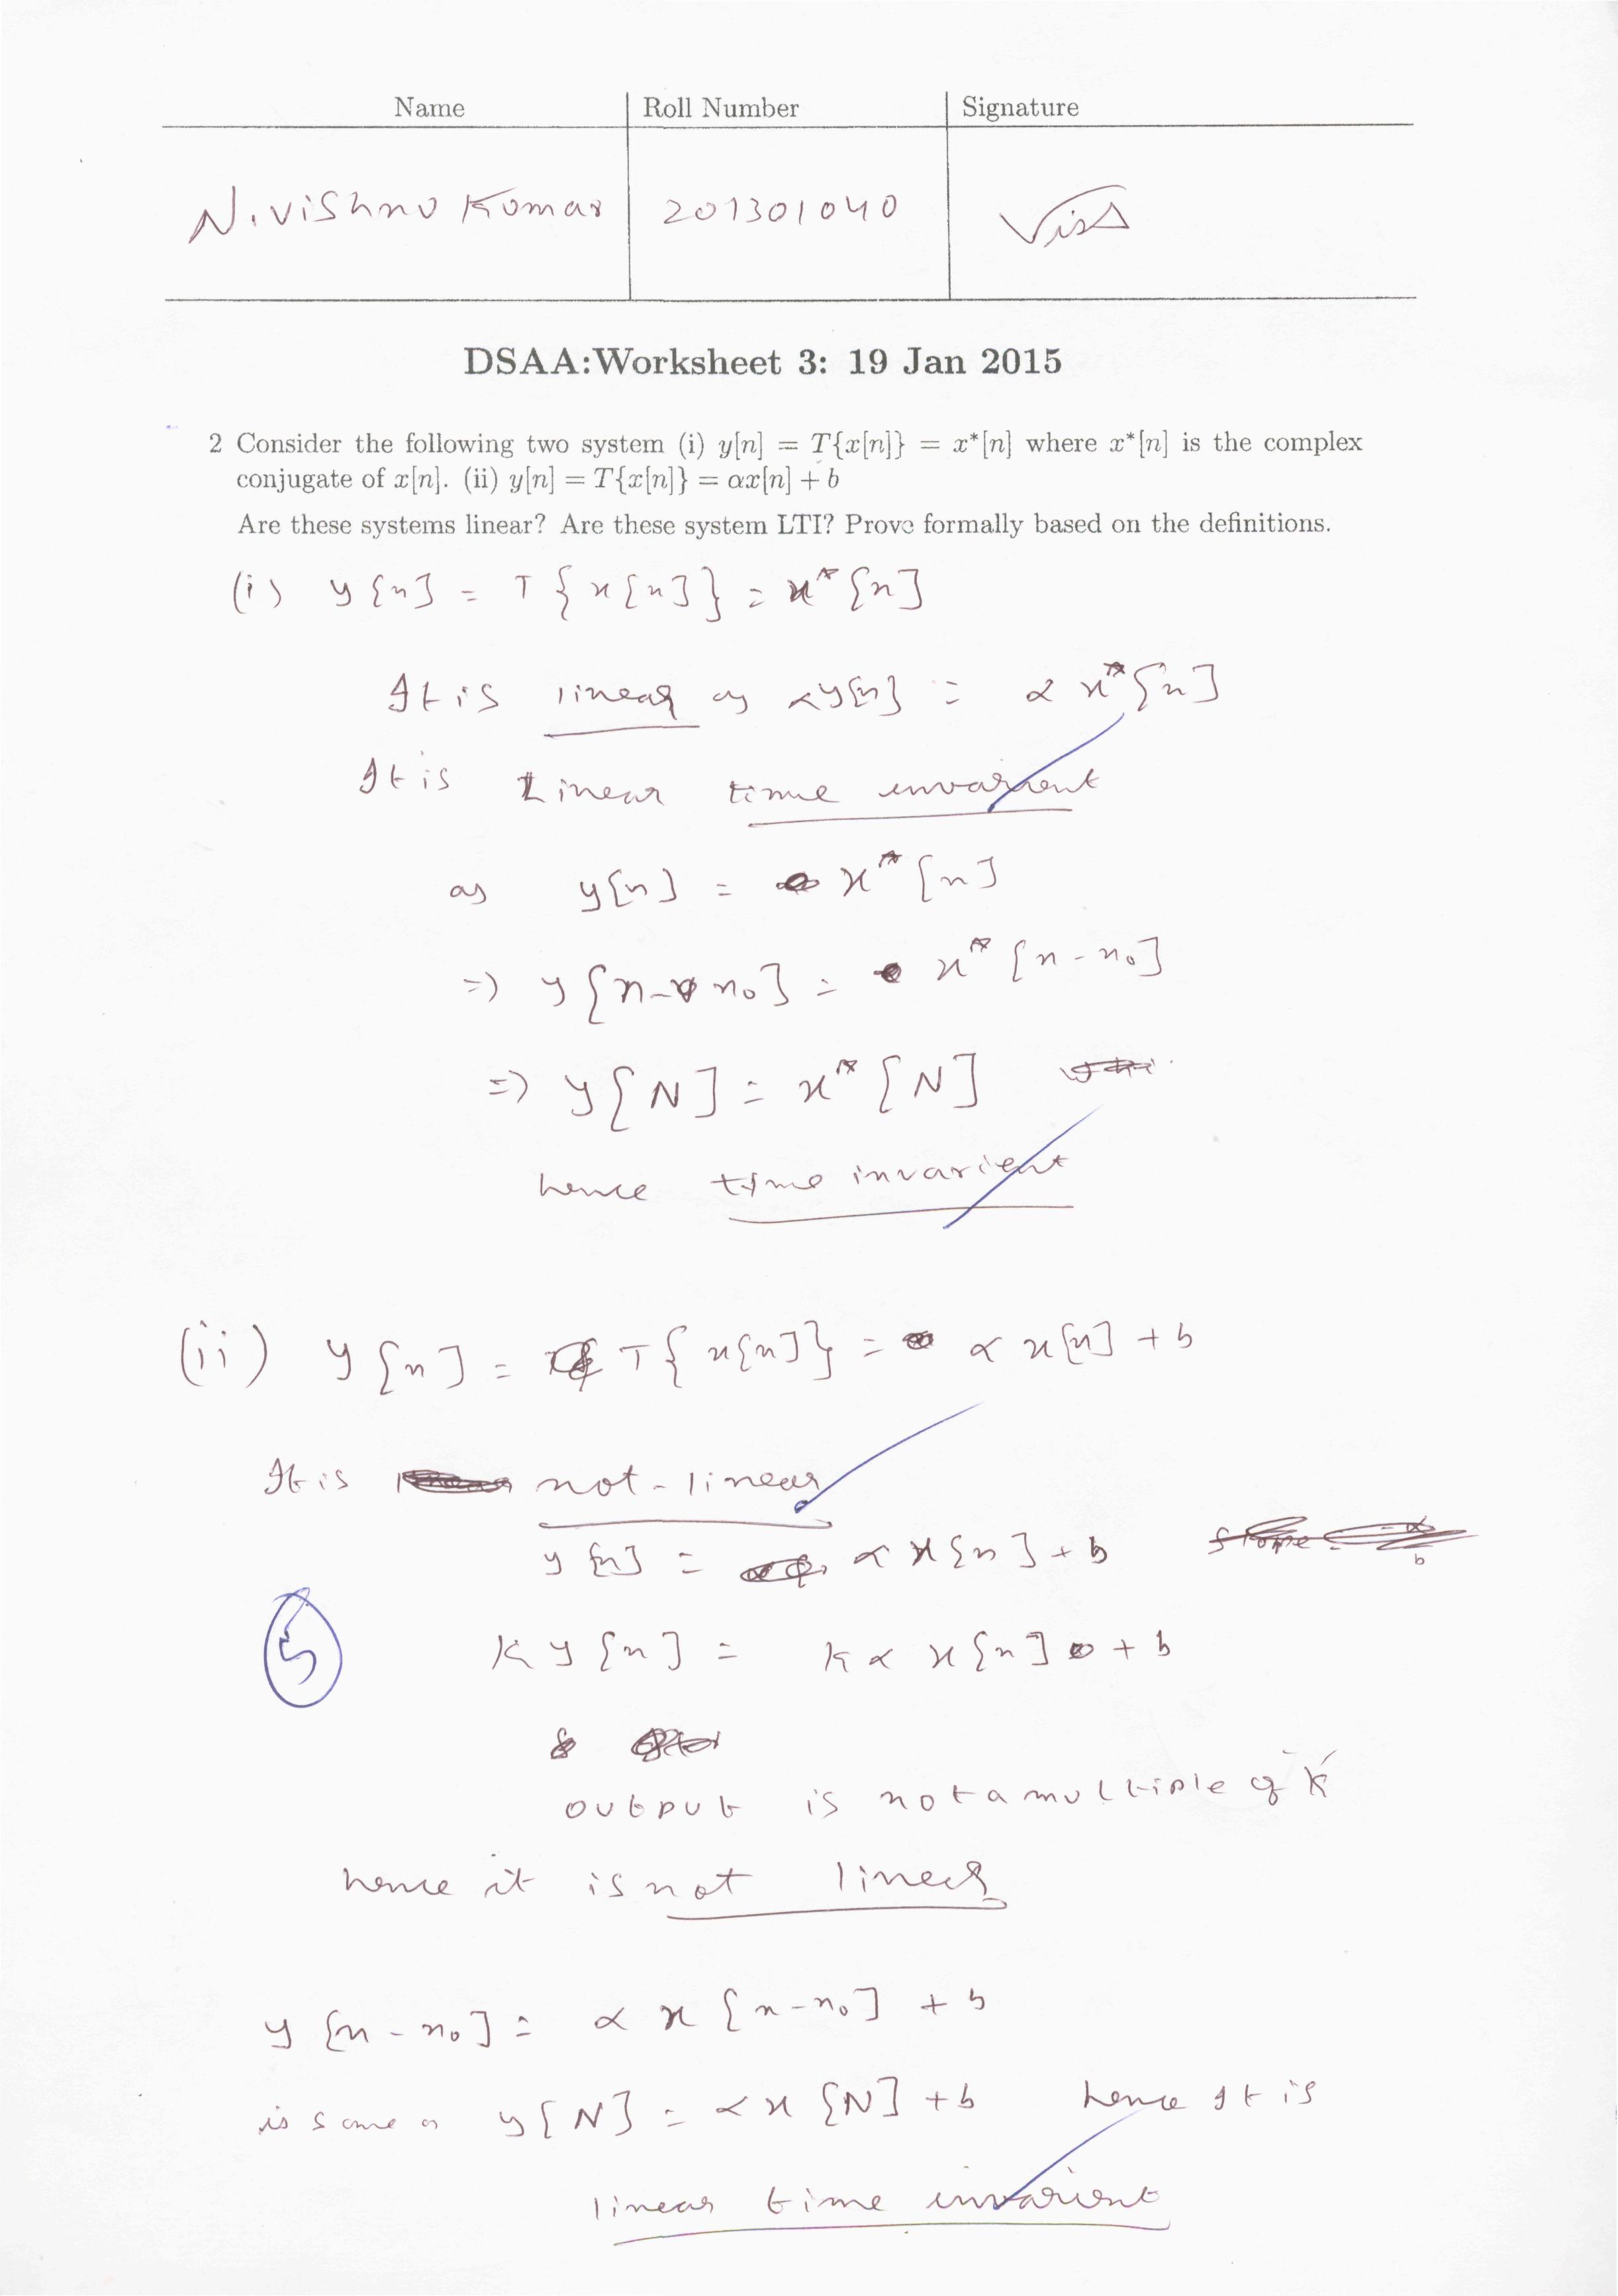 Name Roll Number Signature
N. Vishnu Kumar 201301040
DSAA:Worksheet 3: 19 Jan 2015
2 Consider the following two system (i) y[n] = T{x[n]} = x*[n] where x*[n] is the complex
conjugate of x[n]. (ii) y[n] = T{x[n]} = αx[n] + b
Are these systems linear? Are these system LTI? Prove formally based on the definitions.
(i) y[n] = T{x[n]} = x*[n]
It is linear as αy[n] = αx*[n]
It is Linear time invarient
as y[n] = x*[n]
=> y[n-n₀] = x*[n-n₀]
=> y[N] = x*[N]
hence time invarient
(ii) y[n] = T{x[n]} = αx[n] + b
It is not-linear
y[n] = αx[n] + b
5
Ky[n] = Kαx[n] + b
output is not a multiple of K
hence it is not linear
y[n-n₀] = αx[n-n₀] + b
is same as y[N] = αx[N] + b hence It is
linear time invarient